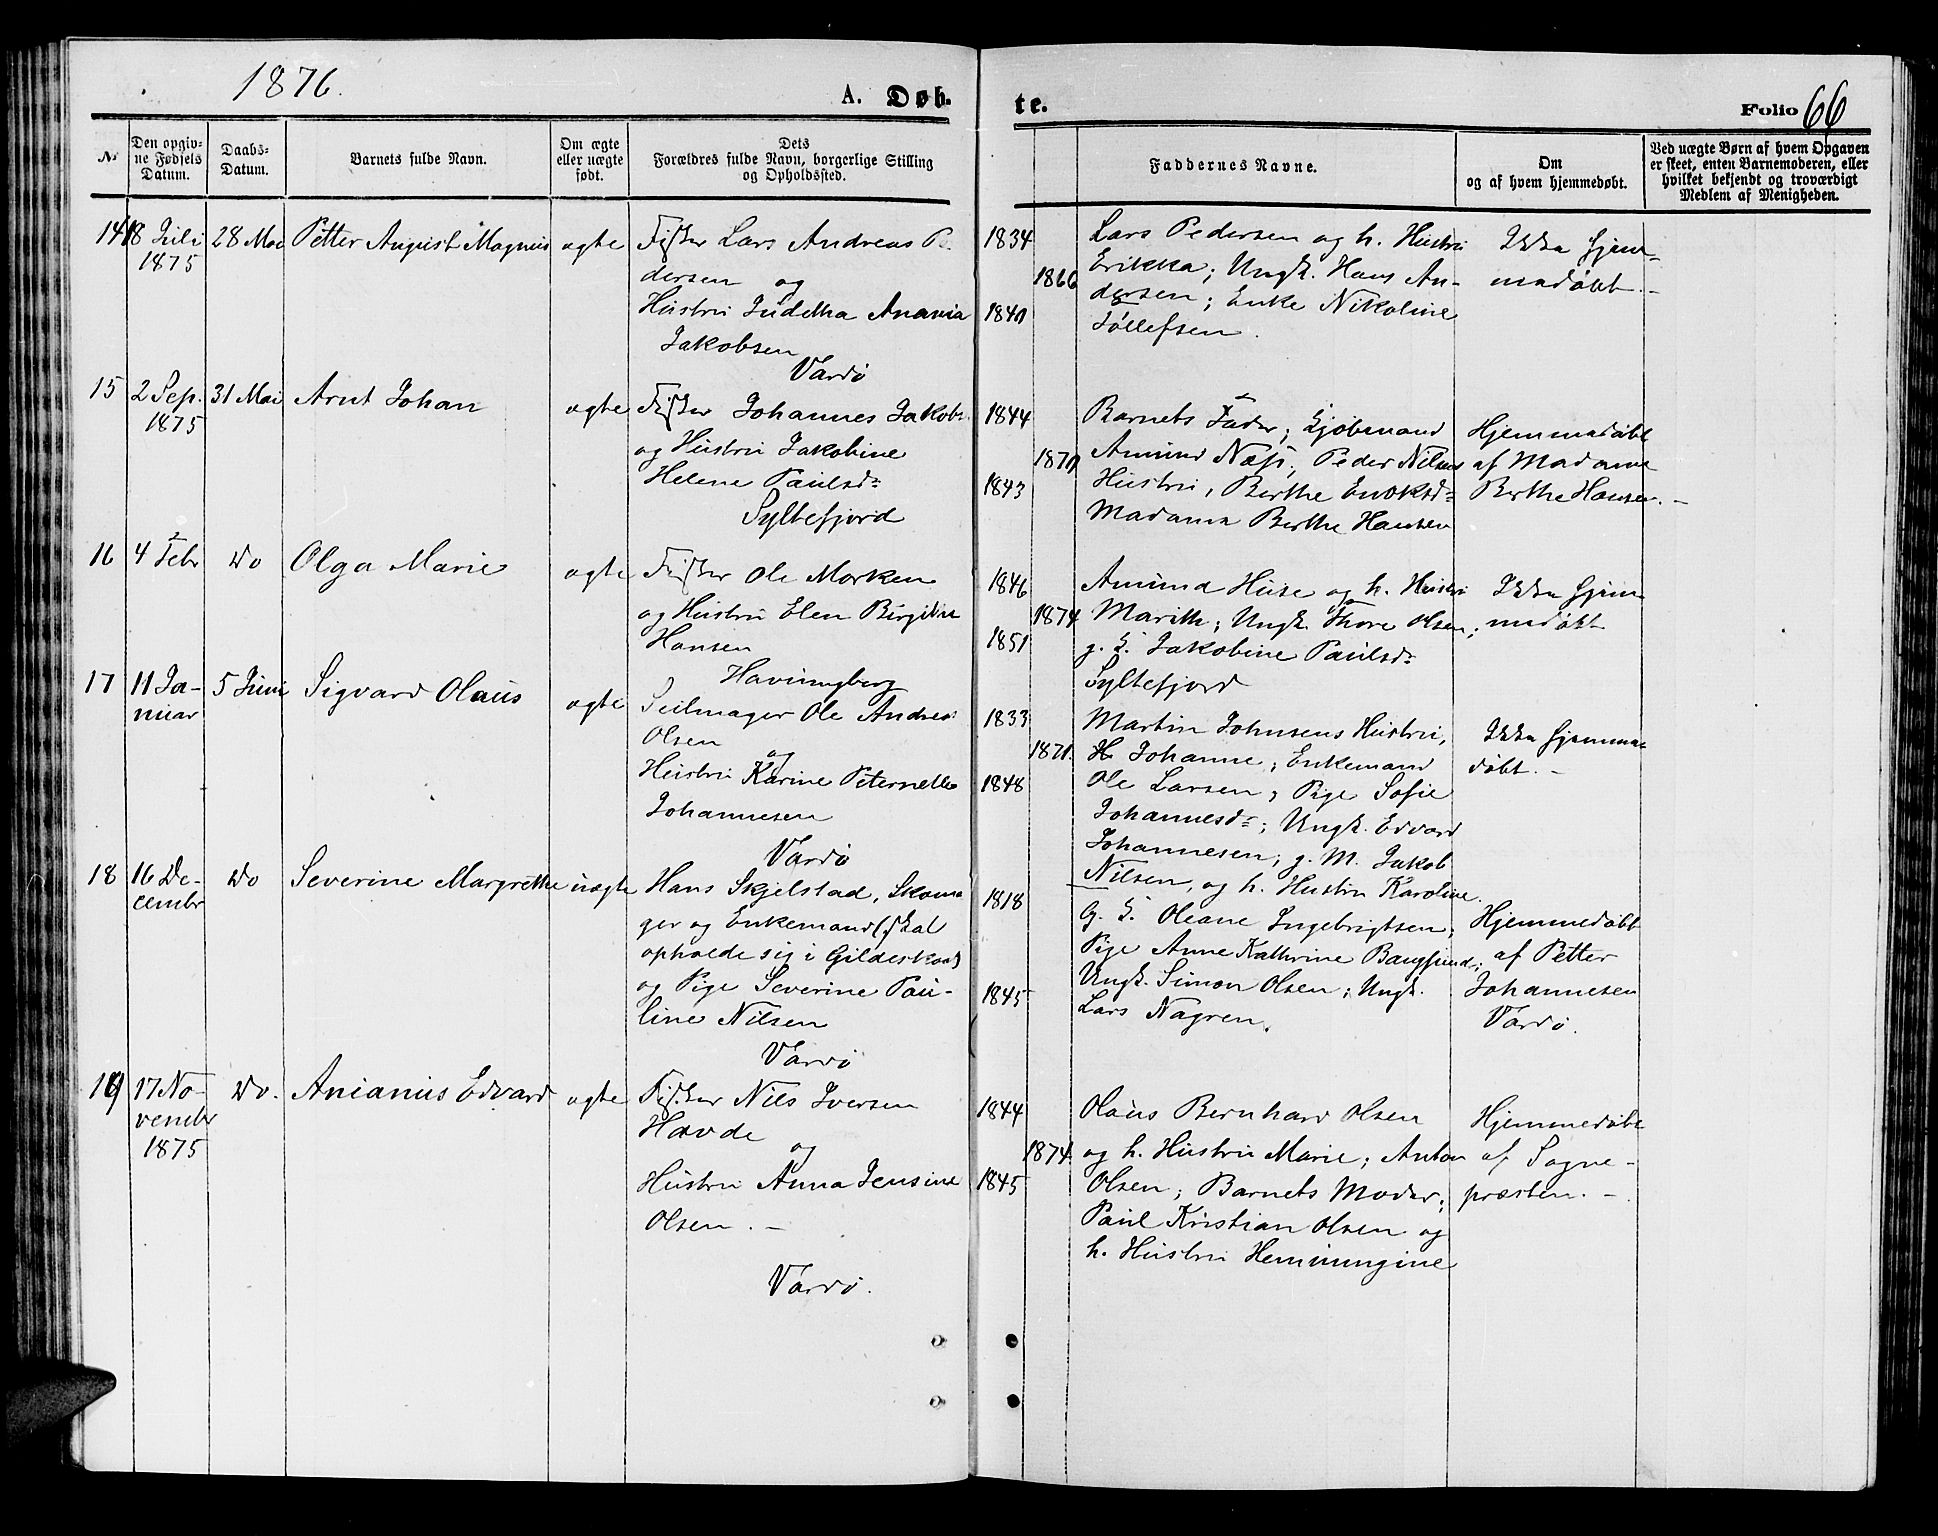 1876.
A. Døb-
te.
Folio 66
Nr
Den opgiv-
ne Fødsels
Datum.
Daabs-
Datum.
Barnets fulde Navn.
Om ægte
eller uægte
født.
Dets
Forældres fulde Navn, borgerlige Stilling
og Opholdssted.
Faddernes Navne.
Om
og af hvem hjemmedøbt.
Ved uægte Børn af hvem Opgaven
er skeet, enten Barnemoderen, eller
hvilket bekjendt og troværdigt
Medlem af Menigheden.
14
18 Juli
1875
28 Mai
Petter August Magnus
ægte
Fisker Lars Andreas Pe-
dersen og
Hustru Juditha Anania
Jakobsen
Vardö
1834
1866
1840
Lars Pedersen og h. Hustru
Erikka; Ungk. Hans An-
dersen; Enke Nikoline
Tollefsen.
Ikke hjem-
medøbt.-
15
2 Sep.
1875
31 Mai
Arnt Johan
ægte
Fisker Johannes Jakobs.
og Hustru Jakobine
Helene Paulsd=
Syltefjord
1844
1870
1843
Barnets Fader; Kjöbmand
Amund Næss; Peder Nilsens
Hustru, Berthe Enoksd=
Madama Berthe Hansen
Hjemmedøbt
af Madame
Berthe Hansen.-
16
4 Febr
Do
Olga Marie
ægte
Fisker Ole Morken
og Hustru Elen Birgitte
Hansen
Havningberg
1846
1874
1851
Amund Huse og h. Hustru
Marith; Ungk. Thore Olsen;
g. K. Jakobine Paulsd=
Syltefjord
Ikke hjem-
medøbt
17
11 Ja-
nuar
5 Juni
Sigvard Olaus
ægte
Seilmager Ole Andreas
Olsen
og
Hustru Karine Peternelle
Johannesen
Vardö
1833
1871.
1848
Martin Johnsens Hustru,
Johanne; Enkemand
Ole Larsen; Pige Sofie
Johannesd=; Ungk. Edvard
Johannesen; g. M. Jakob
Nilsen, og h. Hustru Karoline.
Ikke hjemme-
døbt.-
18
16 De-
cembr
Do
Severine Margrethe
uægte
Hans Skjelstad, Skoma
ger og Enkemand (skal
opholde sig i Gildeskaal)
og Pige Severine Pau-
line Nilsen
Vardö
1818
1845
G. K. Oleane Ingebrigtsen;
Pige Anne Kathrine Bangsund;
Ungk. Simon Olsen; Ungk.
Lars Nagren.
Hjemmedøbt
af Petter
Johannesen
Vardö.
19
17 No-
vembr
1875
Do.
Ananius Edvard
ægte
Fisker Nils Iversen
Havde
og
Hustru Anna Jensine
Olsen.-
Vardö.
1844
1874
1845
Olaus Bernhard Olsen
og h. Hustru Marie; Anton
Olsen; Barnets Moder;
Paul Kristian Olsen og
h. Hustru Hemmingine
Hjemmedøbt
af Sogne-
præsten.-